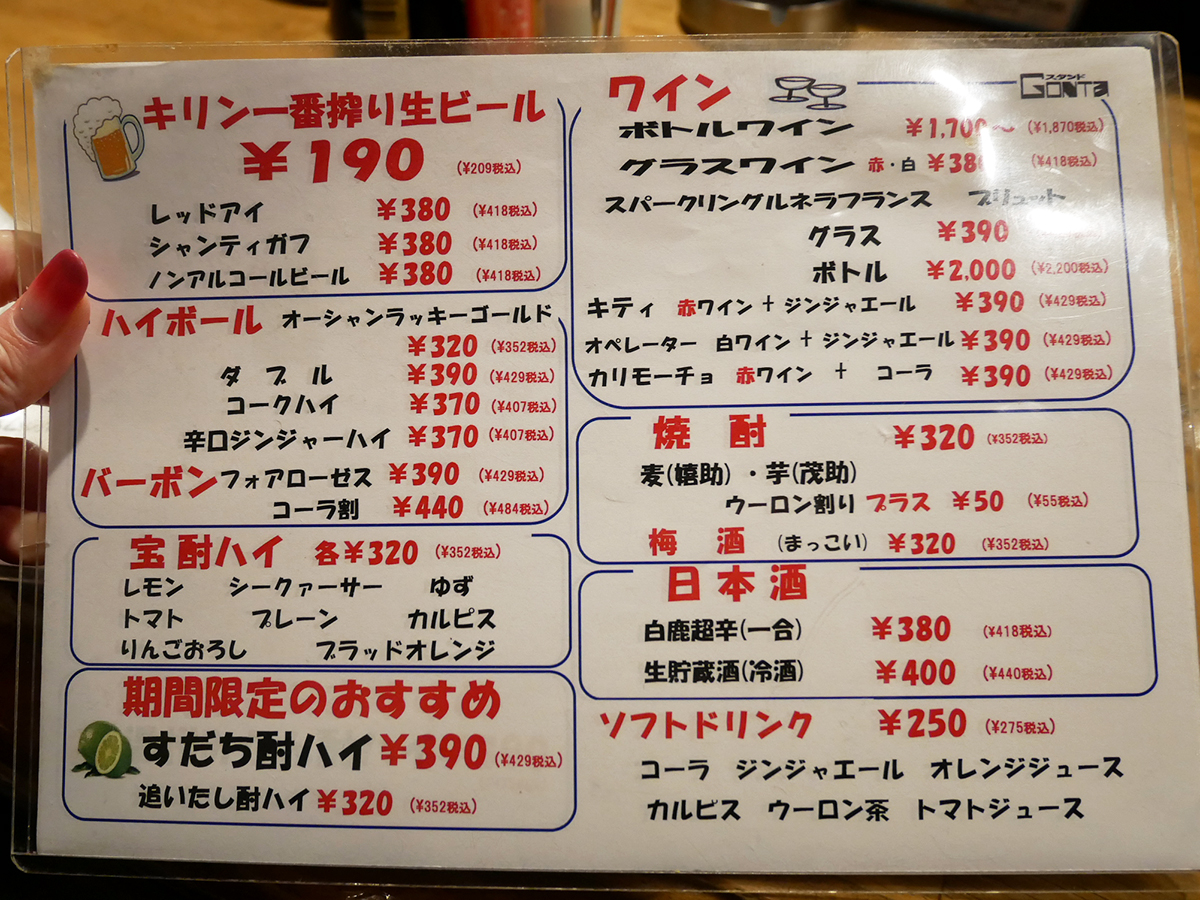 キリン一番搾り生ビール
¥190 (¥209税込)
レッドアイ ¥380 (¥418税込)
シャンティガフ ¥380 (¥418税込)
ノンアルコールビール ¥380 (¥418税込)
ハイボール オーシャンラッキーゴールド
¥320 (¥352税込)
ダブル ¥390 (¥429税込)
コークハイ ¥370 (¥407税込)
辛口ジンジャーハイ ¥370 (¥407税込)
バーボン フォアローゼス ¥390 (¥429税込)
コーラ割 ¥440 (¥484税込)
宝酎ハイ 各¥320 (¥352税込)
レモン シークァーサー ゆず
トマト プレーン カルピス
りんごおろし ブラッドオレンジ
期間限定のおすすめ
すだち酎ハイ ¥390 (¥429税込)
追いたし酎ハイ ¥320 (¥352税込)
スタンド
GONTA
ワイン
ボトルワイン ¥1,700〜 (¥1,870税込)
グラスワイン 赤・白 ¥380 (¥418税込)
スパークリングルネラフランス ブリュット
グラス ¥390
ボトル ¥2,000 (¥2,200税込)
キティ 赤ワイン+ジンジャエール ¥390 (¥429税込)
オペレーター 白ワイン+ジンジャエール ¥390 (¥429税込)
カリモーチョ 赤ワイン + コーラ ¥390 (¥429税込)
焼酎 ¥320 (¥352税込)
麦(嬉助)・芋(茂助)
ウーロン割り プラス ¥50 (¥55税込)
梅酒 (まっこい) ¥320 (¥352税込)
日本酒
白鹿超辛(一合) ¥380 (¥418税込)
生貯蔵酒(冷酒) ¥400 (¥440税込)
ソフトドリンク ¥250 (¥275税込)
コーラ ジンジャエール オレンジジュース
カルピス ウーロン茶 トマトジュース